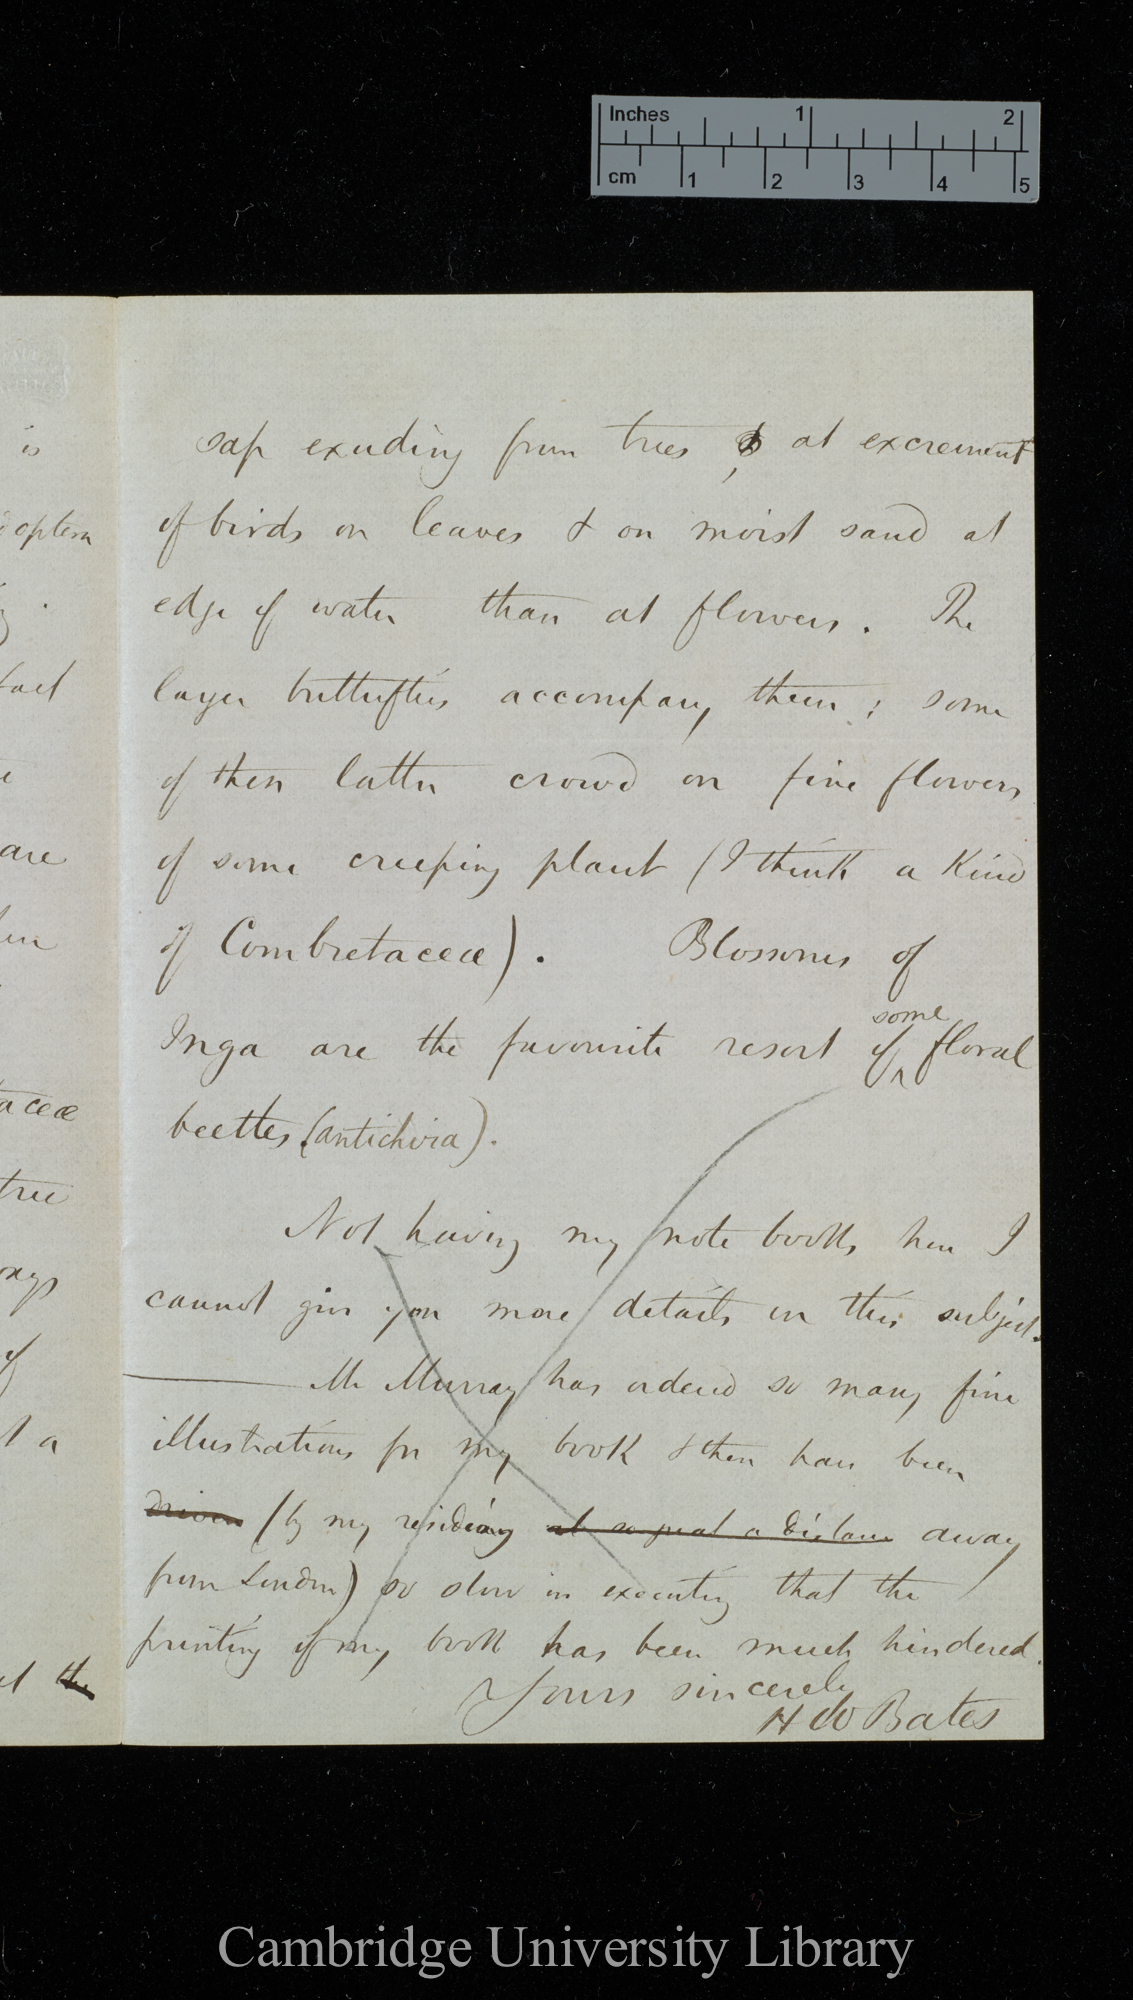 Inches 1 2
cm 1 2 3 4 5
is
optera
fact
are
aceæ
tree
of
t a
the
sap exuding from trees, & at excrement
of birds on leaves & on moist sand at
edge of water than at flowers. The
larger butterflies accompany them; some
of these latter crowd on fine flowers
of some creeping plant (I think a kind
of Combretaceæ). Blossoms of
some
Inga are the favourite resort of ^ floral
beetles (antichira).
Not having my note books here I
cannot give you more details on this subject.
Mr Murray has ordered so many fine
illustrations for my book & then have been
driven (by my residing at so great a distance away
from London) so slow in executing that the
printing of my book has been much hindered.
Yours sincerely
H W Bates
Cambridge University Library